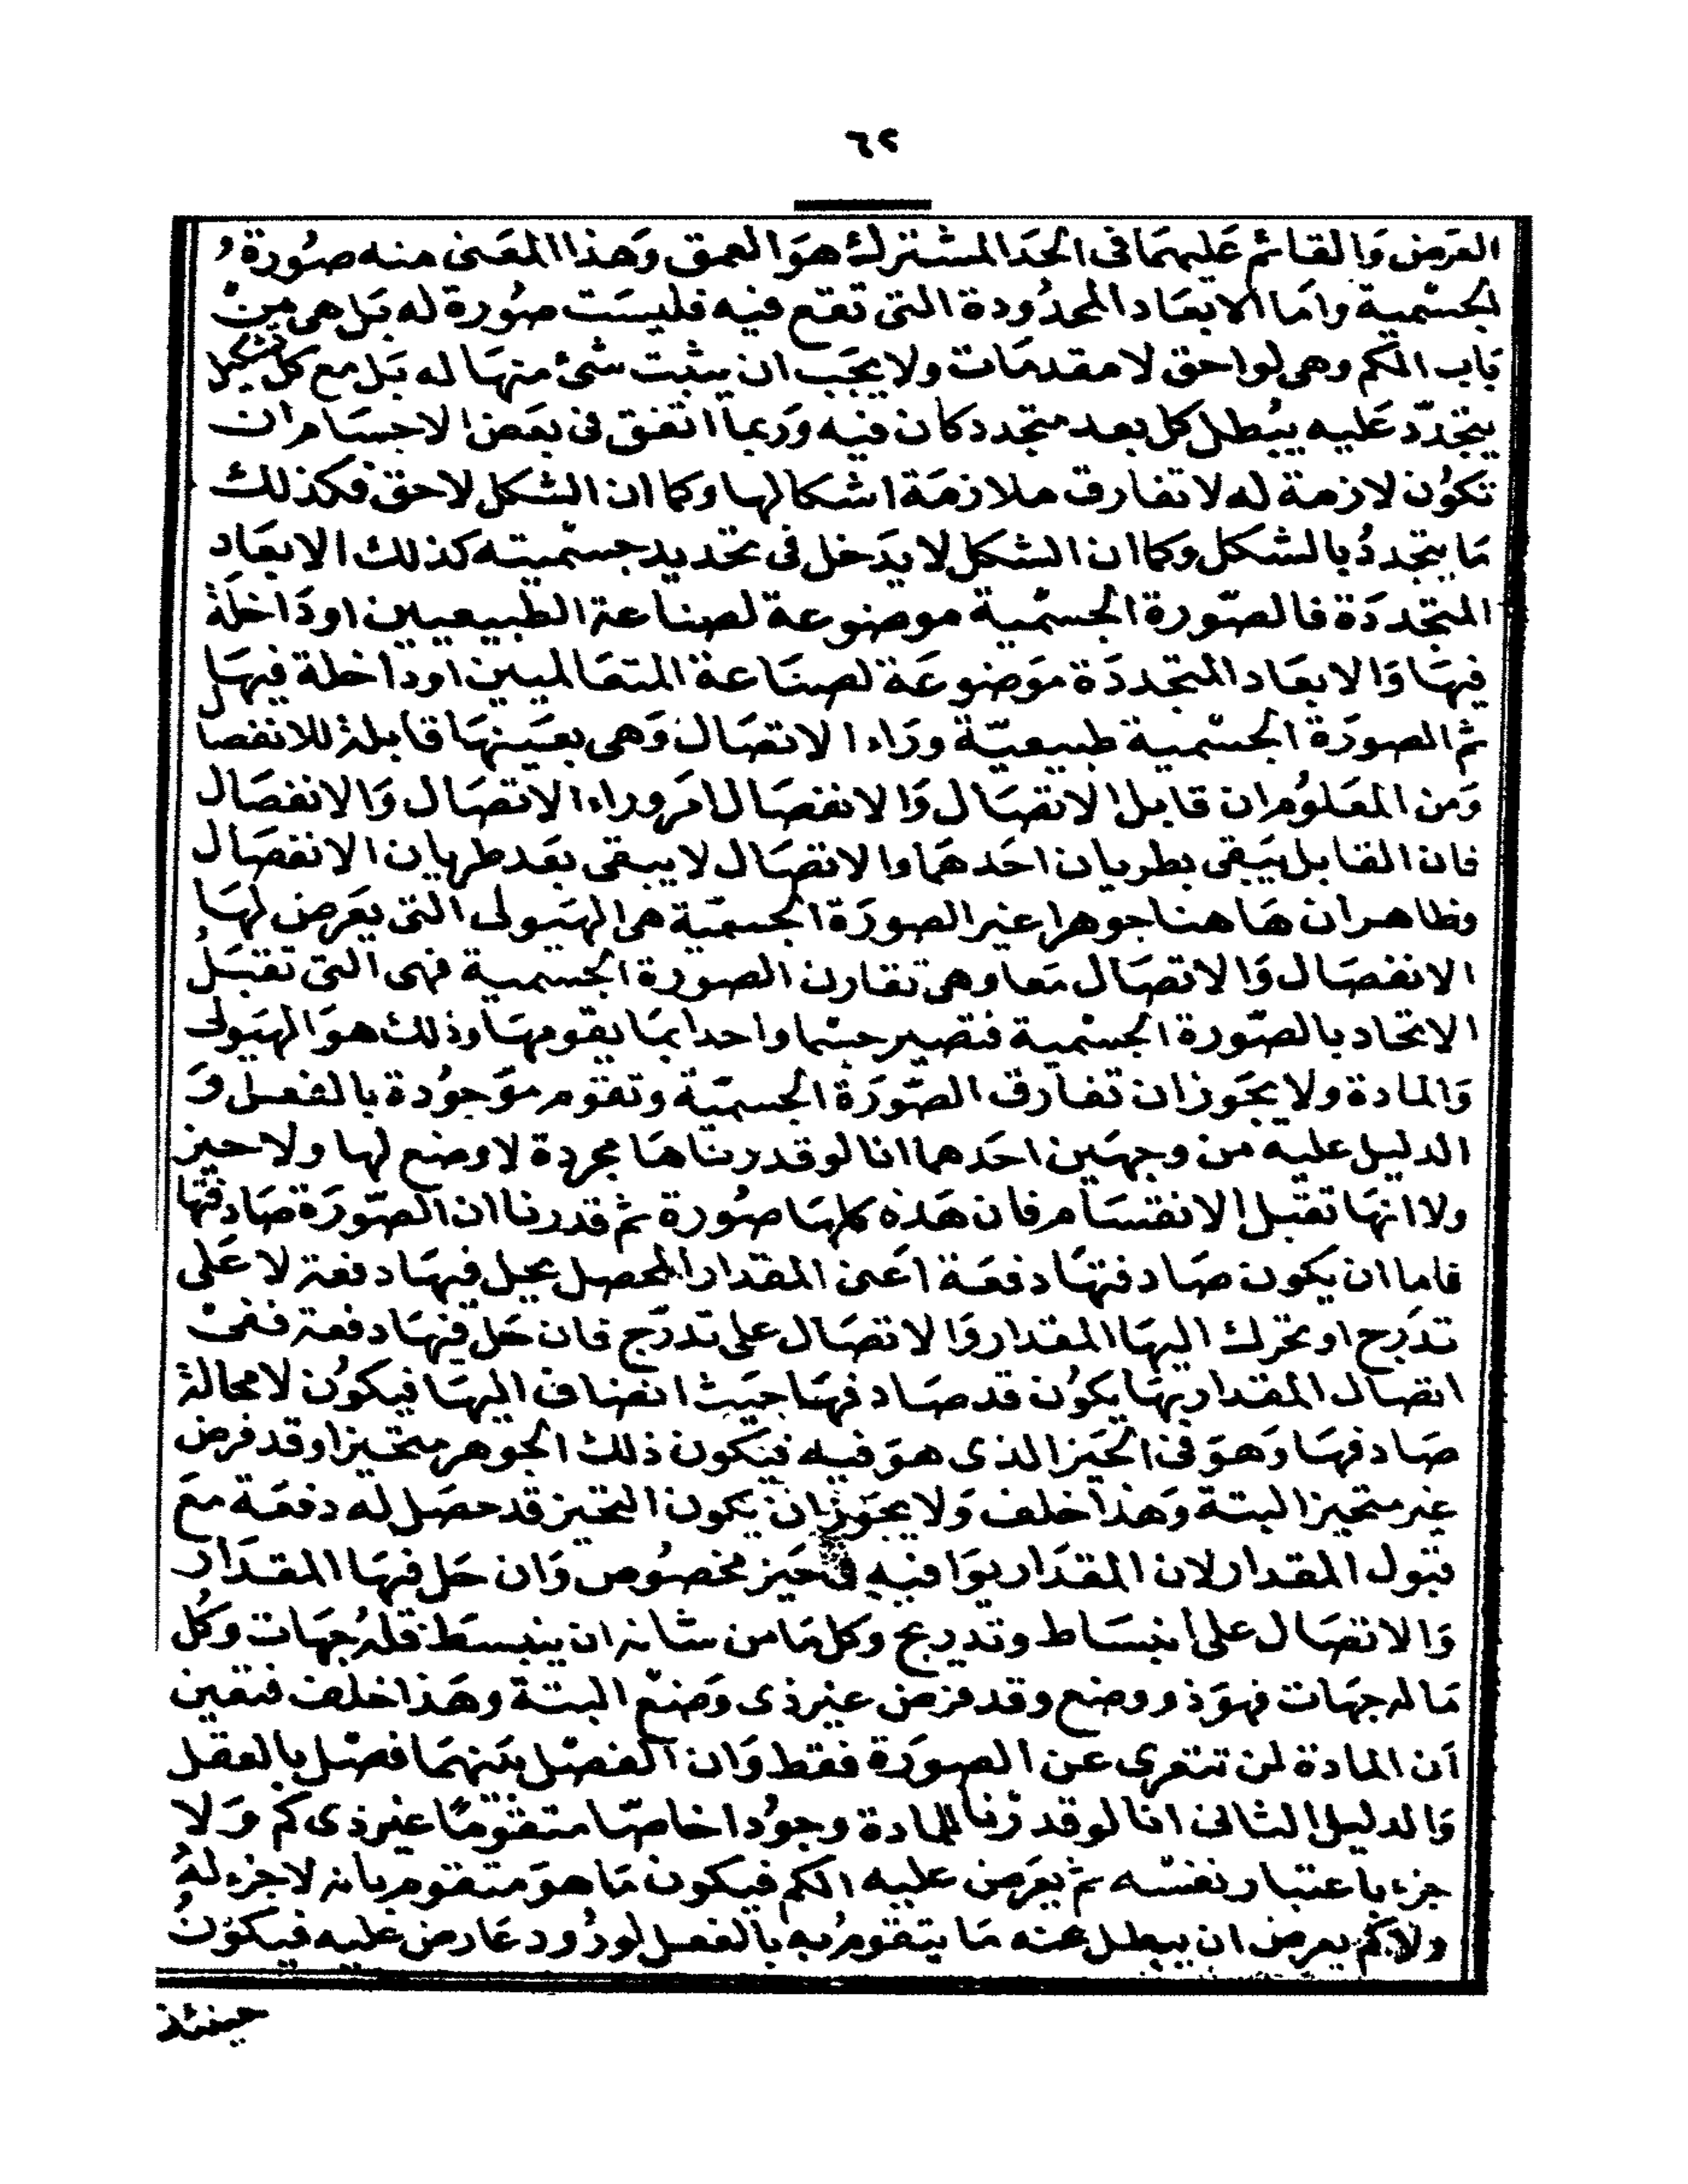 ٦٢
العرض والقائم عليهما فى الحد المشترك هو العمق وهذا المعنى منه صورة و
لجسمية واما الابعاد المحدودة التى تقع فيه فليست صورة له بل هى من
باب الكم وهى لواحق لا مقدمات ولا يجب ان يثبت شئ منها له بل مع كل تشكيل
يتجدد عليه يبطل كل بعد متجدد كان فيه وربما اتفق فى بعض الاجسام ان
تكون لازمة له لا تفارق ملازمة اشكالها وكما ان الشكل لاحق فكذلك
ما يتجدد بالشكل وكما ان الشكل لا يدخل فى تحديد جسميته كذلك الابعاد
المتجددة فالصورة الجسمية موضوعة لصناعة الطبيعيين او داخلة
فيها والابعاد المتجددة موضوعة لصناعة المتعالميين او داخلة فيها
ثم الصورة الجسمية طبيعية وراء الاتصال وهى بعينها قابلة للانفصال
ومن المعلوم ان قابل الاتصال والانفصال امر وراء الاتصال والانفصال
فان القابل يبقى بطريان احدهما والاتصال لا يبقى بعد طريان الانفصال
وظاهر ان هاهنا جوهرا غير الصورة الجسمية هى الهيولى التى يعرض لها
الانفصال والاتصال معا وهى تقارن الصورة الجسمية فهى التى تقبل
الاتحاد بالصورة الجسمية فتصير جسما واحدا بما يقومها وذلك هو الهيولى
والمادة ولا يجوز ان تفارق الصورة الجسمية وتقوم موجودة بالفعل و
الدليل عليه من وجهين احدهما انا لو قدرناها مجردة لا وضع لها ولا حيز
ولا انها تقبل الانقسام فان هذه كلها صورة ثم قدرنا ان الصورة صادفتها
فاما ان يكون صادفتها دفعة اعنى المقدار المحصل يحل فيها دفعة لا على
تدرج او تحرك اليها المقدار والاتصال على تدرج فان حل فيها دفعة ففى
اتصال المقدار بها يكون قد صادفها حيث انضاف اليها فيكون لا محالة
صادفها وهو فى الحيز الذى هو فيه فيكون ذلك الجوهر متحيزا وقد فرض
غير متحيز البتة وهذا خلف ولا يجوز ان يكون التحيز قد حصل له دفعة مع
قبول المقدار لان المقدار يوافيه فى حيز مخصوص وان حل فيها المقدار
والاتصال على انبساط وتدريج وكل ما من شانه ان ينبسط فله جهات وكل
ما له جهات فهو ذو وضع وقد فرض غير ذى وضع البتة وهذا خلف فتعين
ان المادة لن تتعرى عن الصورة فقط وان الفصل بينهما فصل بالعقل
والدليل الثانى انا لو قدرنا للمادة وجودا خاصا متقوما غير ذى كم ولا
جزء باعتبار نفسه ثم يعرض عليه الكم فيكون ما هو متقوم بانه لا جزء له
ولا كم يعرض ان يبطل عنه ما يتقوم به بالفعل لورود عارض عليه فيكون
حينئذ